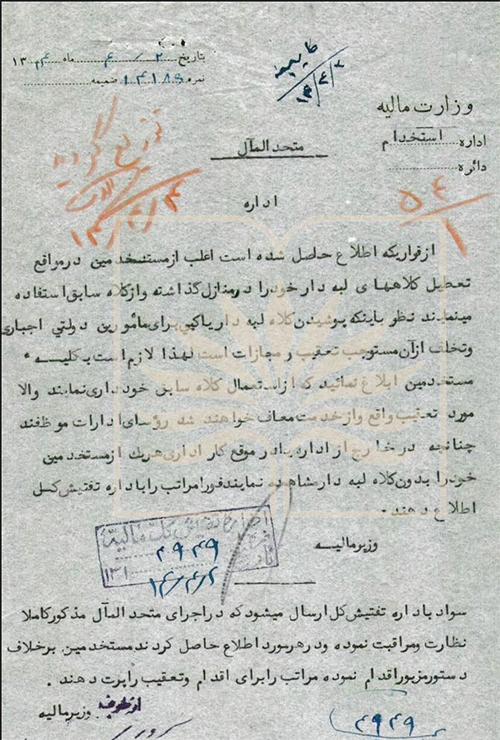 بتاریخ ۲ / ۴ ماه ۱۳۱۴
نمره ۱۴۱۸۹ ضمیمه
وزارت مالیه
اداره استخدام
دائره
متحد المآل
۵۴
۱
اداره
ازقراریکه اطلاع حاصل شده است اغلب ازمستخدمین درمواقع
تعطیل کلاههای لبه دار خودرا درمنازل گذاشته وازکلاه سابق استفاده
مینمایند نظر باینکه پوشیدن کلاه لبه دار یاکپی برای مأمورین دولتی اجباری
وتخلف ازآن مستوجب تعقیب و مجازات است لهذا لازم است بکلیه
مستخدمین ابلاغ نمائید که ازاستعمال کلاه سابق خودداری نمایند والا
مورد تعقیب واقع وازخدمت معاف خواهند شد رؤسای ادارات موظفند
چنانچه درخارج از اداره یادر موقع کار اداری هریک ازمستخدمین
خودرا بدون کلاه لبه دار مشاهده نمایند فورا مراتب را باداره تفتیش کل
اطلاع دهند -
وزیرمالیه
۴۹۴۹
۱۴/۴/۲
سواد باداره تفتیش کل ارسال میشود که دراجرای متحد المآل مذکور کاملا
نظارت ومراقبت نموده ودرهرمورد اطلاع حاصل کردند مستخدمین برخلاف
دستور مزبور اقدام نموده مراتب رابرای اقدام وتعقیب راپرت دهند .
از طرف وزیرمالیه
۴۹۴۹